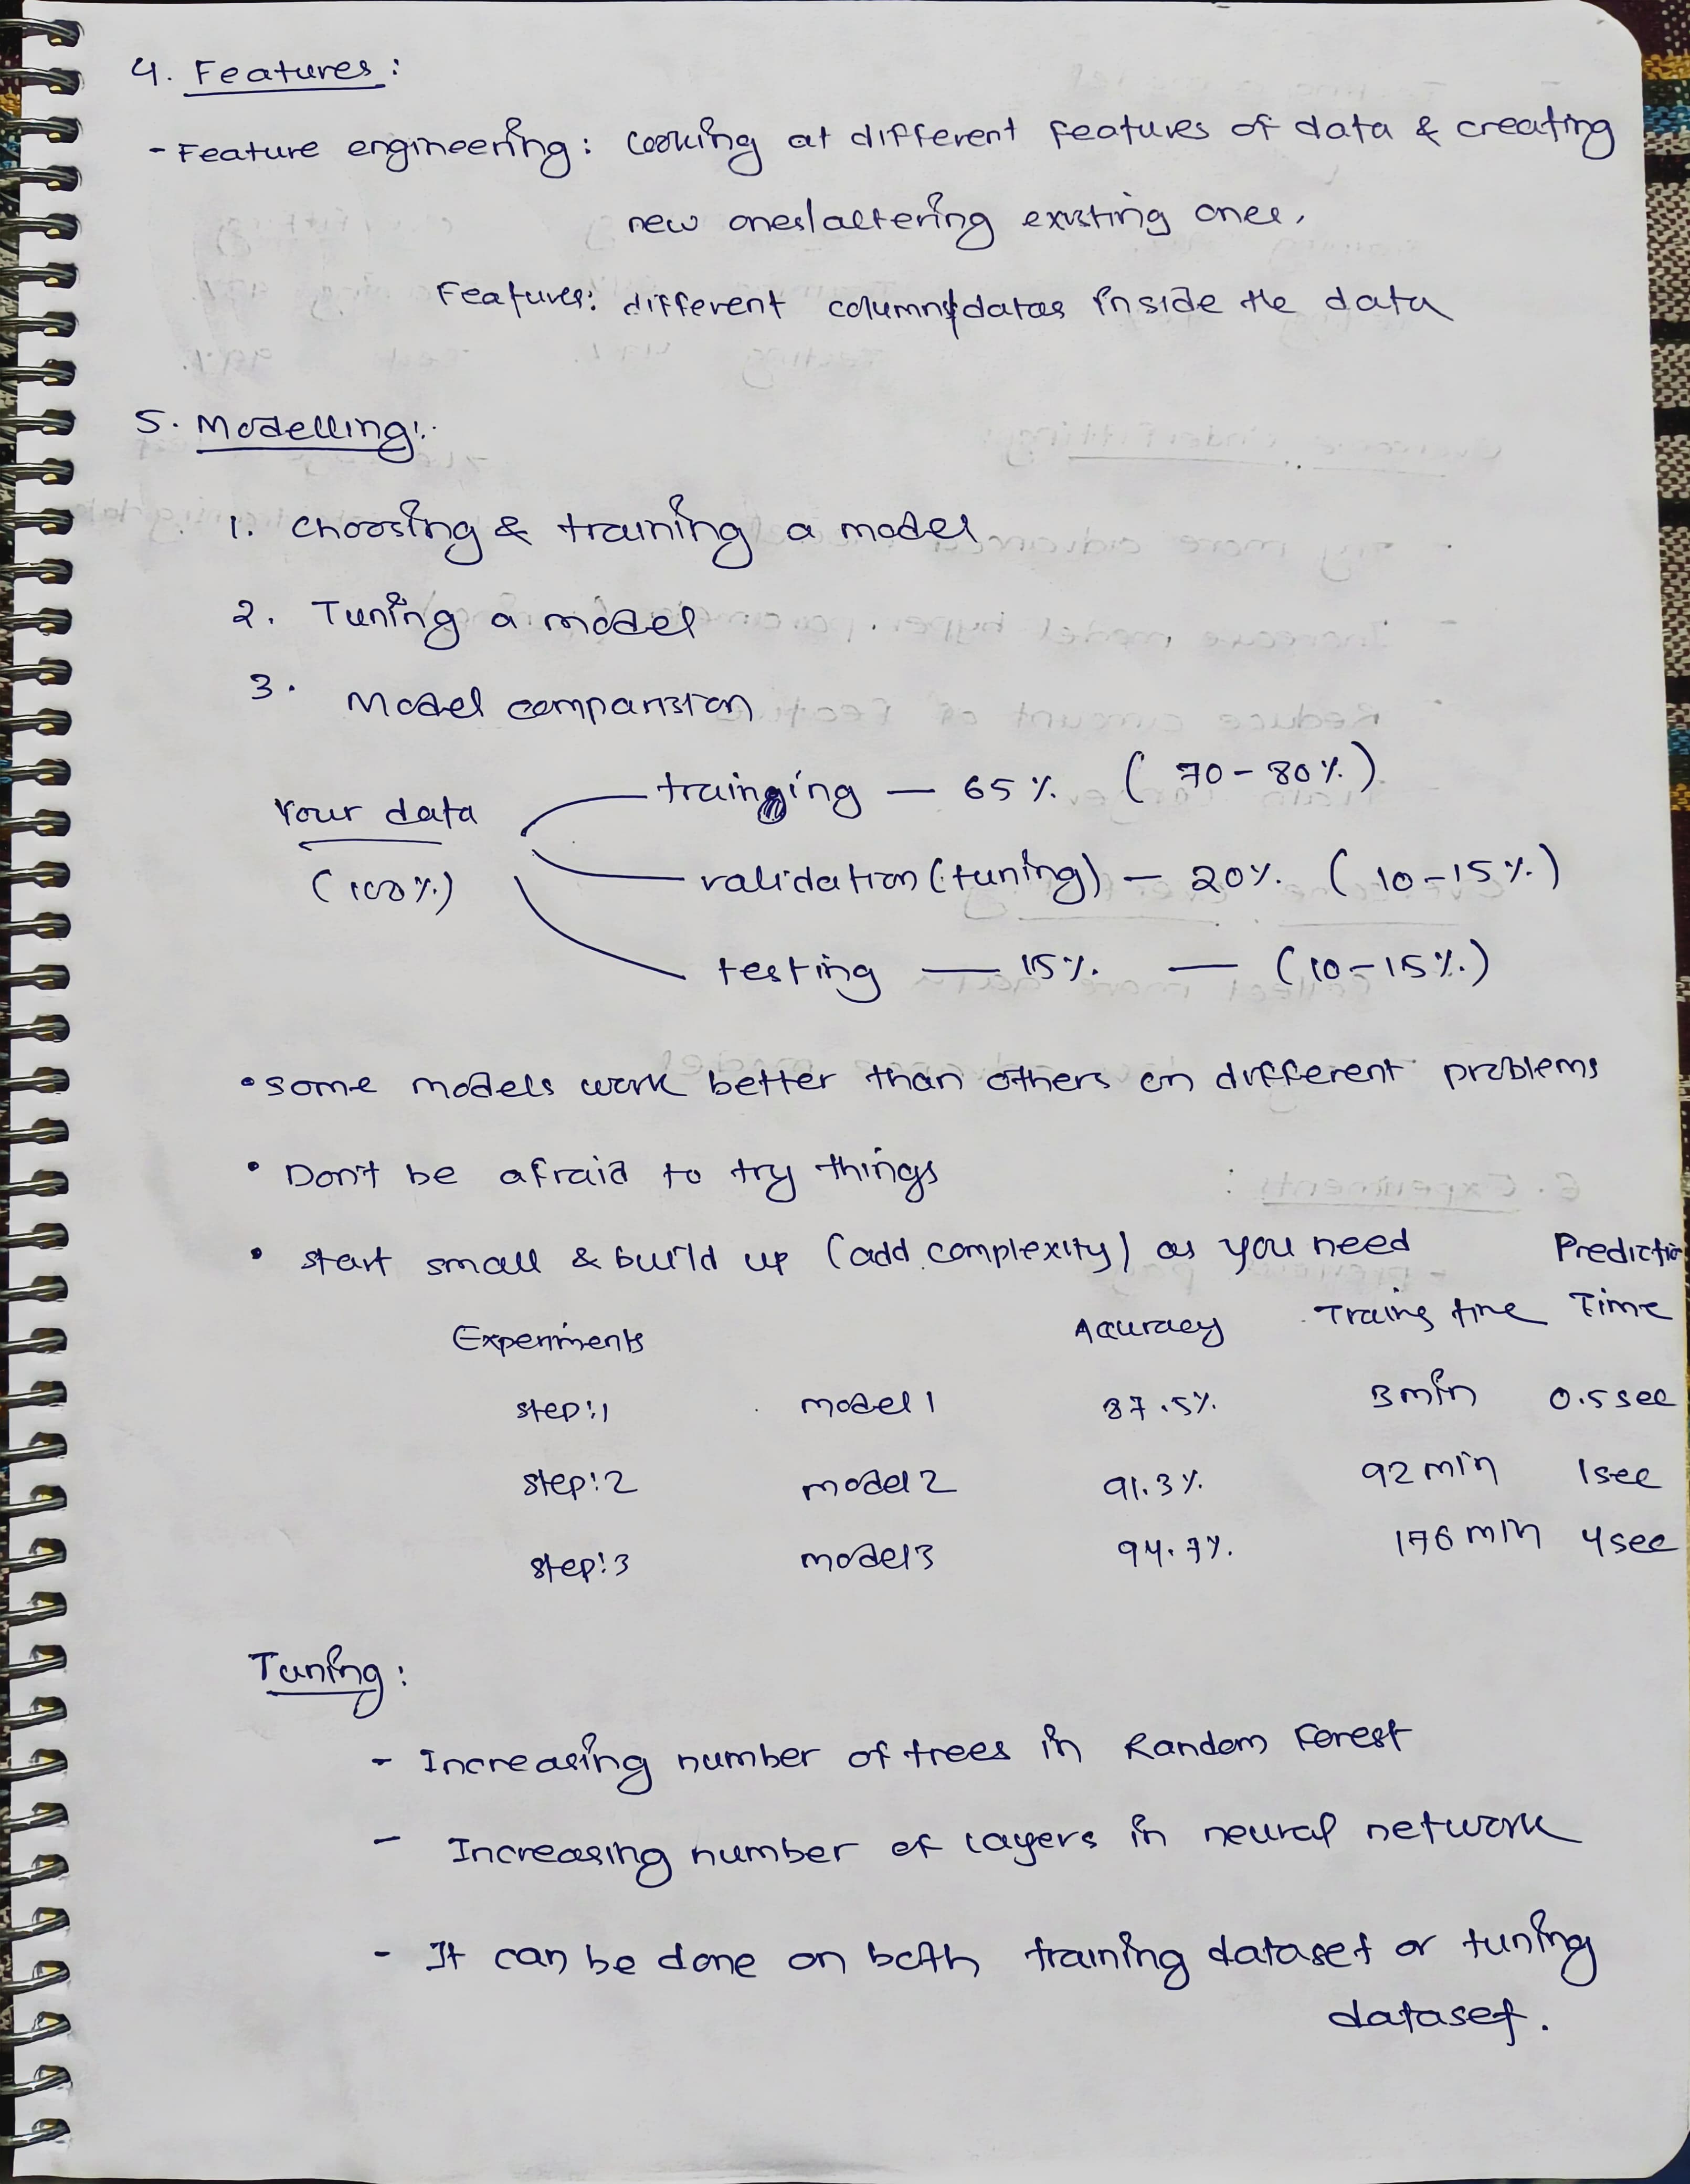 4. Features:
- Feature engineering: Looking at different features of data & creating
new ones/altering existing ones.
Features: different columns/datas inside the data
5. Modelling:
1. Choosing & training a model
2. Tuning a model
3. Model comparistion
Your data
(100%)
trainging — 65% (70-80%)
validation (tuning) — 20% (10-15%)
testing — 15% — (10-15%)
• some models work better than others on different problems
• Don't be afraid to try things
• start small & build up (add complexity) as you need
Experiments Accuracy Traing time Prediction Time
step:1 model 1 87.5% 3min 0.5 sec
step:2 model 2 91.3% 92 min 1sec
step:3 model 3 94.7% 176 min 4sec
Tuning:
- Increasing number of trees in Random Forest
- Increasing number of layers in neural network
- It can be done on both training dataset or tuning
dataset.